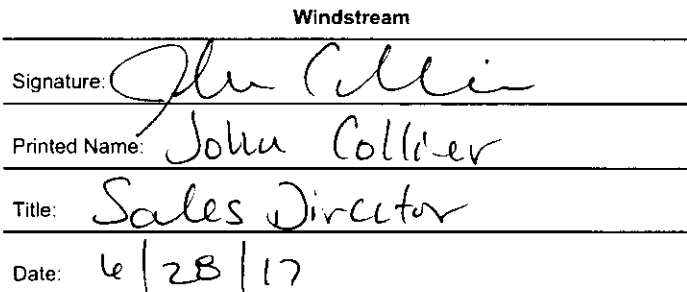 Windstream
Signature: John Collier
Printed Name: John Collier
Title: Sales Director
Date: 6/28/17